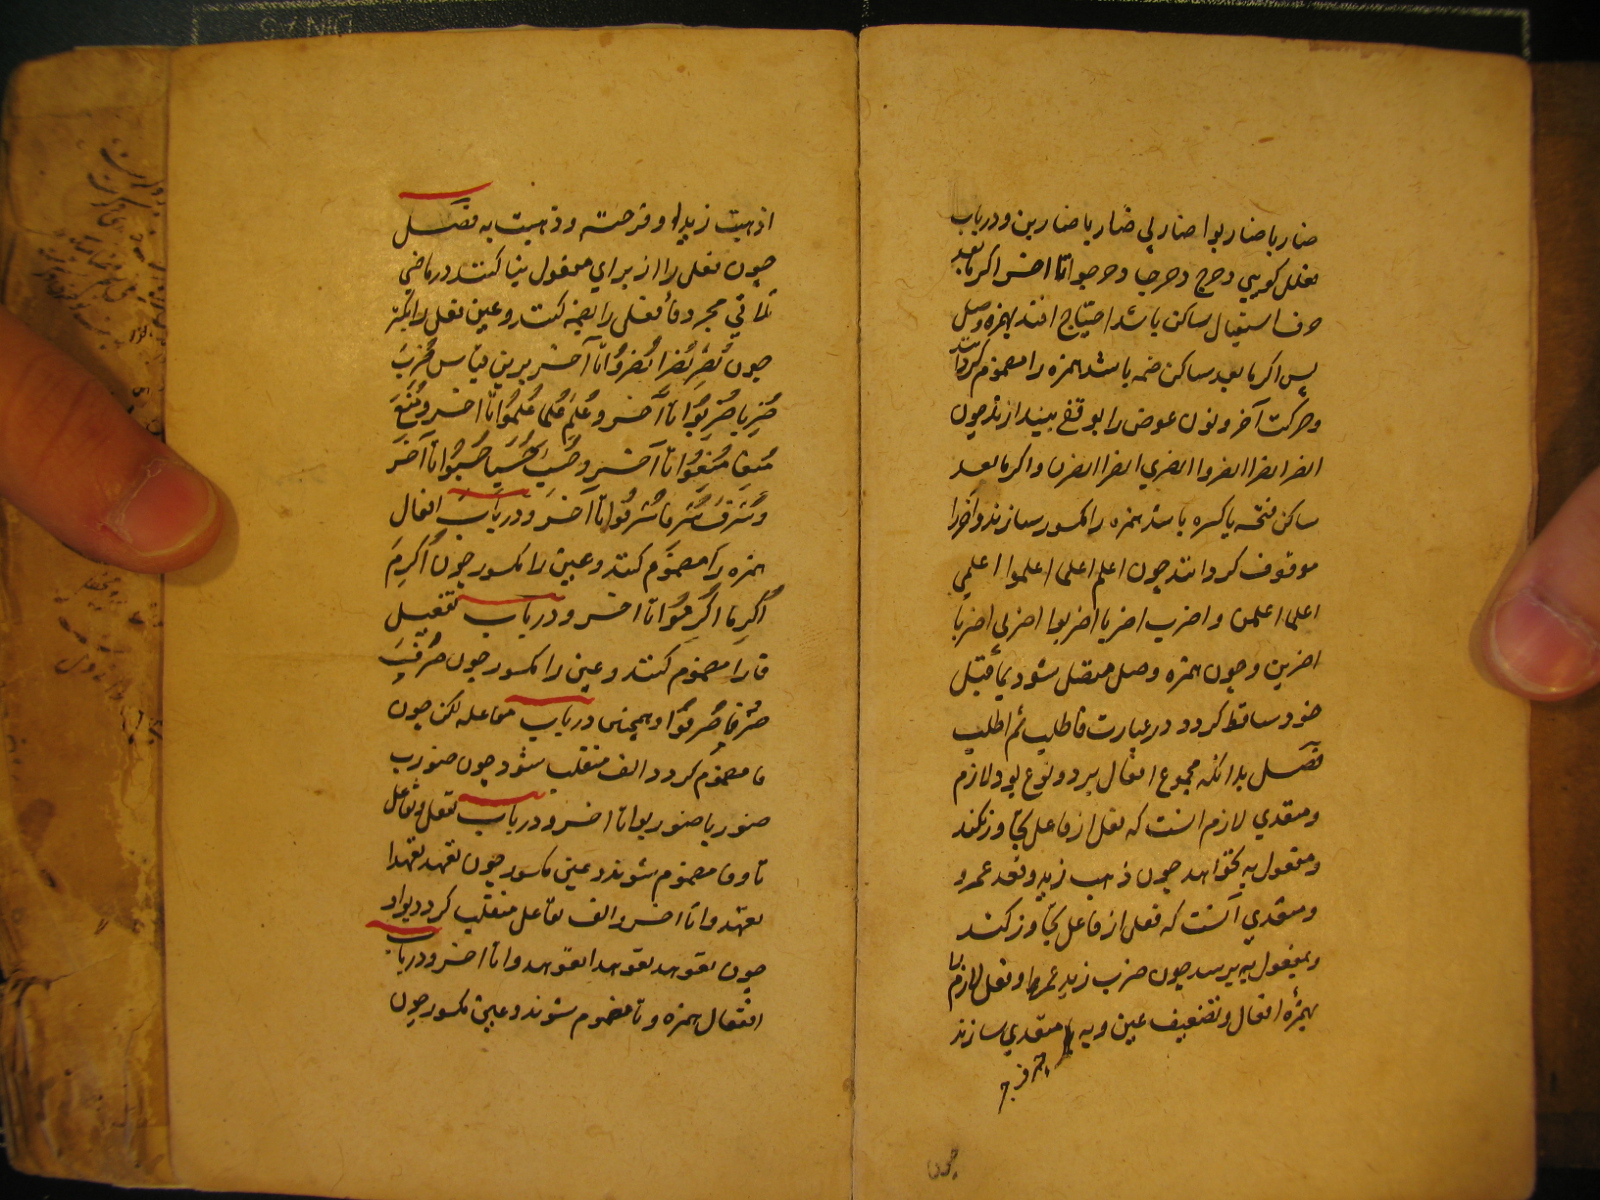 ضاربا ضاربوا ضاربی ضاربا ضاربن و در باب
فعلل کویی دحرج دحرجا دحرجوا تا اخر اکر مابعد
حرف استقبال ساکن باشد احتیاج افتد بهمزه وصل
پس اکر مابعد ساکن ضمه باشد همزه را مضموم کردانند
و حرکت آخر و نون عوض را بوقفی بیندازند چون
انصر انصرا انصروا انصری انصرا انصرن و اکر مابعد
ساکن فتحه یا کسره باشد همزه را مکسور سازند و آخر را
موقوف کردانند چون اعلم اعلما اعلموا اعلمی
اعلما اعلمن و اضرب اضربا اضربوا اضربی اضربا
اضربن و چون همزه وصل متصل شود بماقبل
خود ساقط کردد در عبارت فاطلب ثم اطلب
فصل بدانکه مجموع افعال بر دو نوع بود لازم
و متعدی لازم آنست که فعل از فاعل تجاوز نکند
و مفعول به نخواهد چون ذهب زید و قعد عمرو
و متعدی آنست که فعل از فاعل تجاوز کند
و بمفعول به برسد چون ضرب زید عمرا و فعل لازم را
بهمزه افعال و تضعیف عین و به متعدی سازند
چون
اذهبت زیدا و فرحته و ذهبت به فصل
چون فعل را از برای مفعول بنا کنند در ماضی
ثلاثی مجرد فاء فعل را بضمه کنند و عین فعل را بکسر
چون نُصِرَ نُصِرا نُصِرُوا تا آخر برین قیاس ضُرِبَ
ضُرِبا ضُرِبُوا تا آخر و عُلِمَ عُلِما عُلِمُوا تا اخر و مُنِعَ
مُنِعا مُنِعُوا تا آخر و حُسِبَ حُسِبا حُسِبُوا تا آخر
و شُرِفَ شُرِفا شُرِفُوا تا آخر و در باب افعال
همزه را مضموم کنند و عین را مکسور چون اُکرِمَ
اُکرِما اُکرِمُوا تا اخر و در باب تفعیل
فا را مضموم کنند و عین را مکسور چون صُرِّفَ
صُرِّفا صُرِّفُوا و همچنین در باب مفاعله لکن چون
فا مضموم کردد الف منقلب شود چون ضورب
ضوربا ضوربوا تا اخر و در باب تفعل و تفاعل
تا و فا مضموم شوند و عین مکسور چون تعهد تعهدا
تعهدوا تا اخر و الف تفاعل منقلب کردد بواو
چون تعوهد تعوهدا تعوهدوا تا اخر و در باب
افتعال همزه و تا مضموم شوند و عین مکسور چون